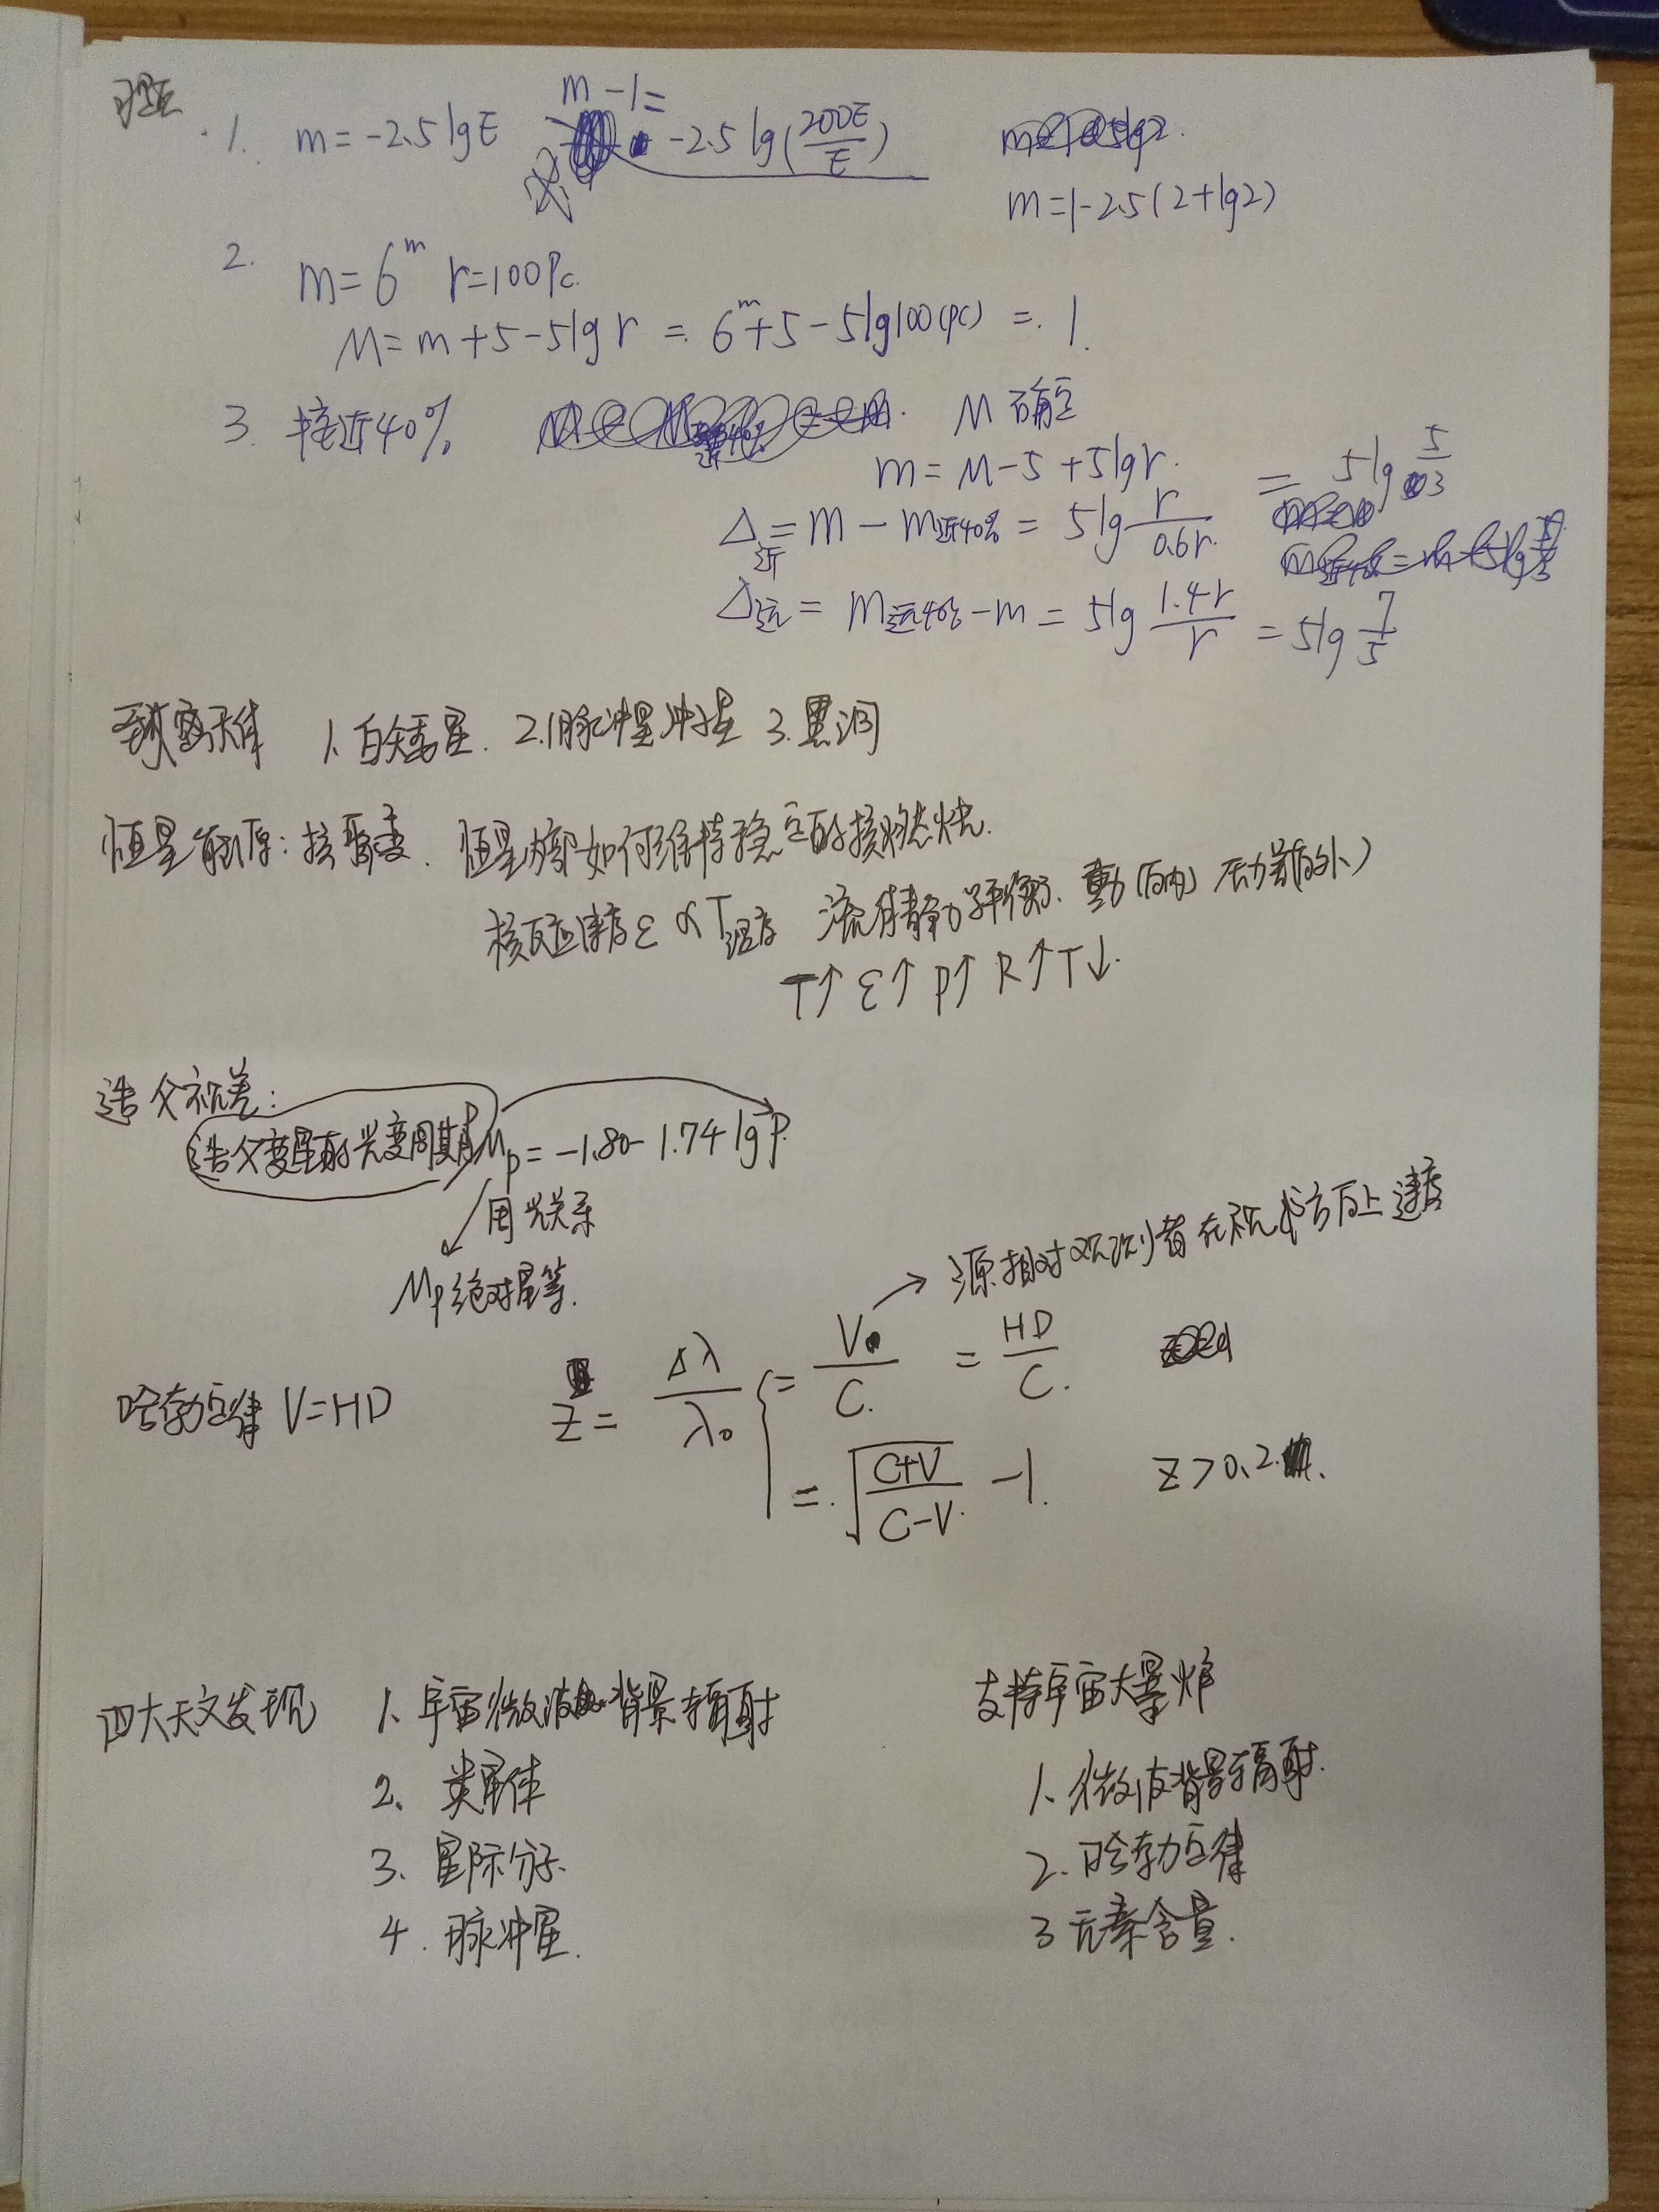 习题
1. m=-2.5lgE m-1= -2.5lg(200E/E)
m=1-2.5(2+lg2)
2. m=6^m r=100Pc.
M=m+5-5lg r = 6^m+5-5lg100(pc) = 1.
3. 接近40% M 确定
m=M-5+5lgr.
Δ近=m-m近40%=5lg r/0.6r = 5lg 5/3
Δ远=m远40%-m=5lg 1.4r/r =5lg 7/5
致密天体 1.白矮星. 2.脉冲星 3.黑洞
恒星能源:核聚变. 恒星内部如何维持稳定的核燃烧.
核反应速度ε∝T温度 流体静力学平衡. 重力(向内) 压力差(向外)
T↑ ε↑ P↑ R↑ T↓.
造父视差:
造父变星的光变周期 Mp=-1.80-1.74lgP.
周光关系
Mp绝对星等.
源相对观测者在视线方向上速度
哈勃定律 V=HD z= Δλ/λ0 = V/C. = HD/C.
= √(C+V/C-V) -1. z>0.2
四大天文发现 1. 宇宙微波背景辐射
2. 类星体
3. 星际分子.
4. 脉冲星.
支持宇宙大爆炸
1. 微波背景辐射.
2. 哈勃定律
3 元素含量.